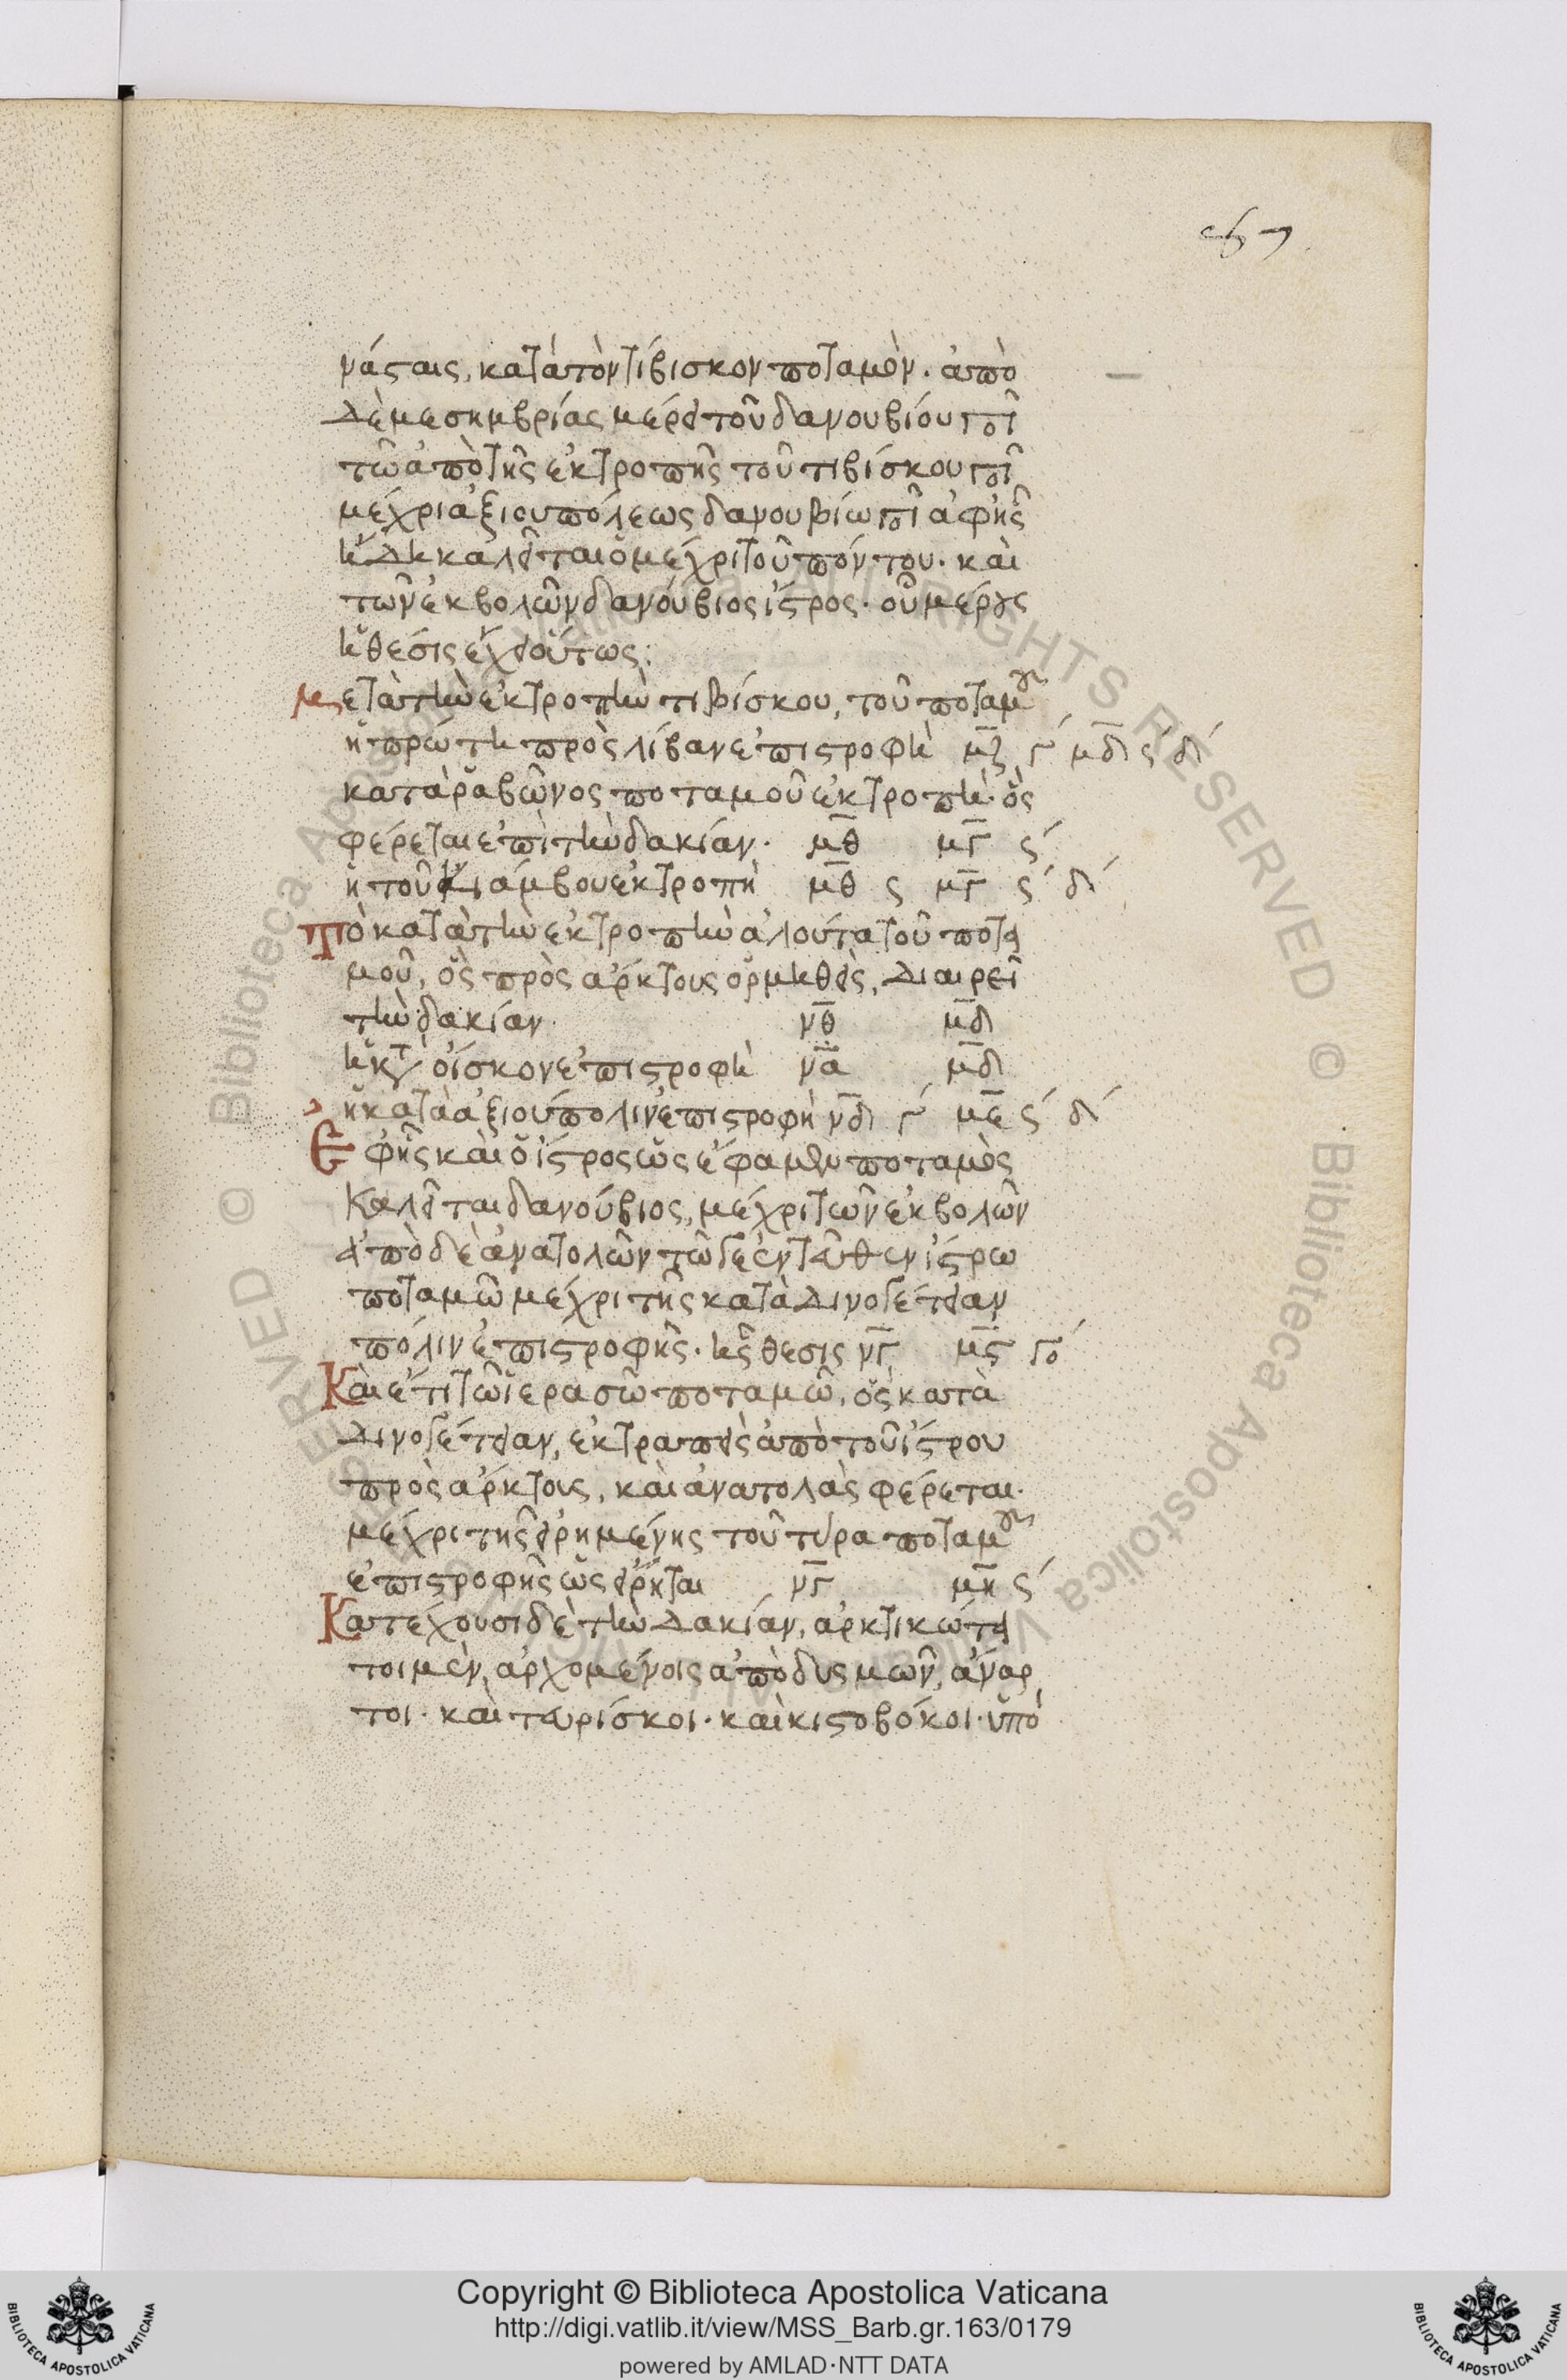 νάσταις, κατὰ τὸν τίβισκον ποταμὸν. ἀπὸ
δὲ μεσημβρίας μέρει τοῦ δανουβίου
τῶ ἀπὸ τῆς ἐκτροπῆς τοῦ τιβίσκου
μέχρι ἀξιουπόλεως δανουβίω ἀφῆς
ἤδη καλεῖται ὁ μέχρι τοῦ πόντου. καὶ
τῶν ἐκβολῶν δανούβιος ἴστρος. οὗ μέρους
ἡ θέσις ἔχει οὕτως:
μετὰ τὴν ἐκτροπὴν τιβίσκου, τοῦ ποταμοῦ
ἡ πρώτη πρὸς λίβαν ἐπιστροφὴ μ̅ζ̅ γ´ μ̅δ̅ ς´ δ´
κατὰ ῥαβῶνος ποταμοῦ ἐκτροπὴ. ὃς
φέρεται ἐπὶ τὴν δακίαν. μ̅θ̅ μ̅γ̅ ς´
ἡ τοῦ κιάμβου ἐκτροπὴ μ̅θ̅ ς μ̅γ̅ ς´ δ´
πὸ κατὰ τὴν ἐκτροπὴν ἀλούτα τοῦ ποτα
μοῦ, ὃς πρὸς ἄρκτους ὁρμηθεὶς, διαιρεῖ
τὴν δακίαν. ν̅θ̅ μ̅δ̅
ἡ κτ οἴσκον ἐπιστροφὴ ν̅α̅ μ̅δ̅
ἡ κατὰ ἀξιούπολιν ἐπιστροφὴ ν̅δ̅ γ´ μ̅ε̅ ς´ δ´
Ἐφῆς καὶ ὁ ἴστρος ὡς ἔφαμεν ποταμὸς
καλεῖται δανούβιος, μέχρι τῶν ἐκβολῶν
ἀπὸ δὲ ἀνατολῶν τῶ τε ἐντεῦθεν ἴστρω
ποταμῶ μέχρι τῆς κατὰ Δινογέτειαν
πόλιν ἐπιστροφῆς. ἧς θέσις ν̅γ̅ μ̅ς̅ γο´
Καὶ ἔτι τῶ ἱερασῶ ποταμῶ, ὃς κατὰ
Δινογέτειαν, ἐκτραπεὶς ἀπὸ τοῦ ἴστρου
πρὸς ἄρκτους, καὶ ἀνατολὰς φέρεται.
μέχρι τῆς εἰρημένης τοῦ τύρα ποταμοῦ
ἐπιστροφῆς ὡς εἴρηται ν̅γ̅ μ̅η̅ ς´
Κατέχουσι δὲ τὴν Δακίαν, ἀρκτικώτα
τοι μὲν, ἀρχομένοις ἀπὸ δυσμῶν, ἄναρ
τοι. καὶ τευρίσκοι. καὶ κιστοβόκοι. ὑπὸ
Copyright © Biblioteca Apostolica Vaticana
http://digi.vatlib.it/view/MSS_Barb.gr.163/0179
powered by AMLAD·NTT DATA